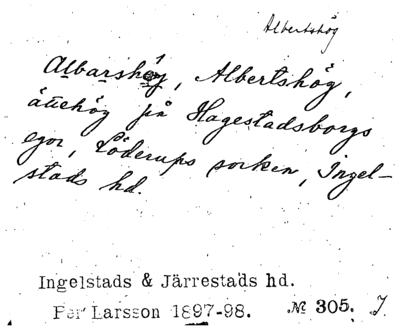 Albertshög
Albarshög, Albertshög,
ättehög på Hagestadsborgs
egor, Löderups socken, Ingel-
stads hd.
Ingelstads & Järrestads hd.
Per Larsson 1897-98. № 305. I.